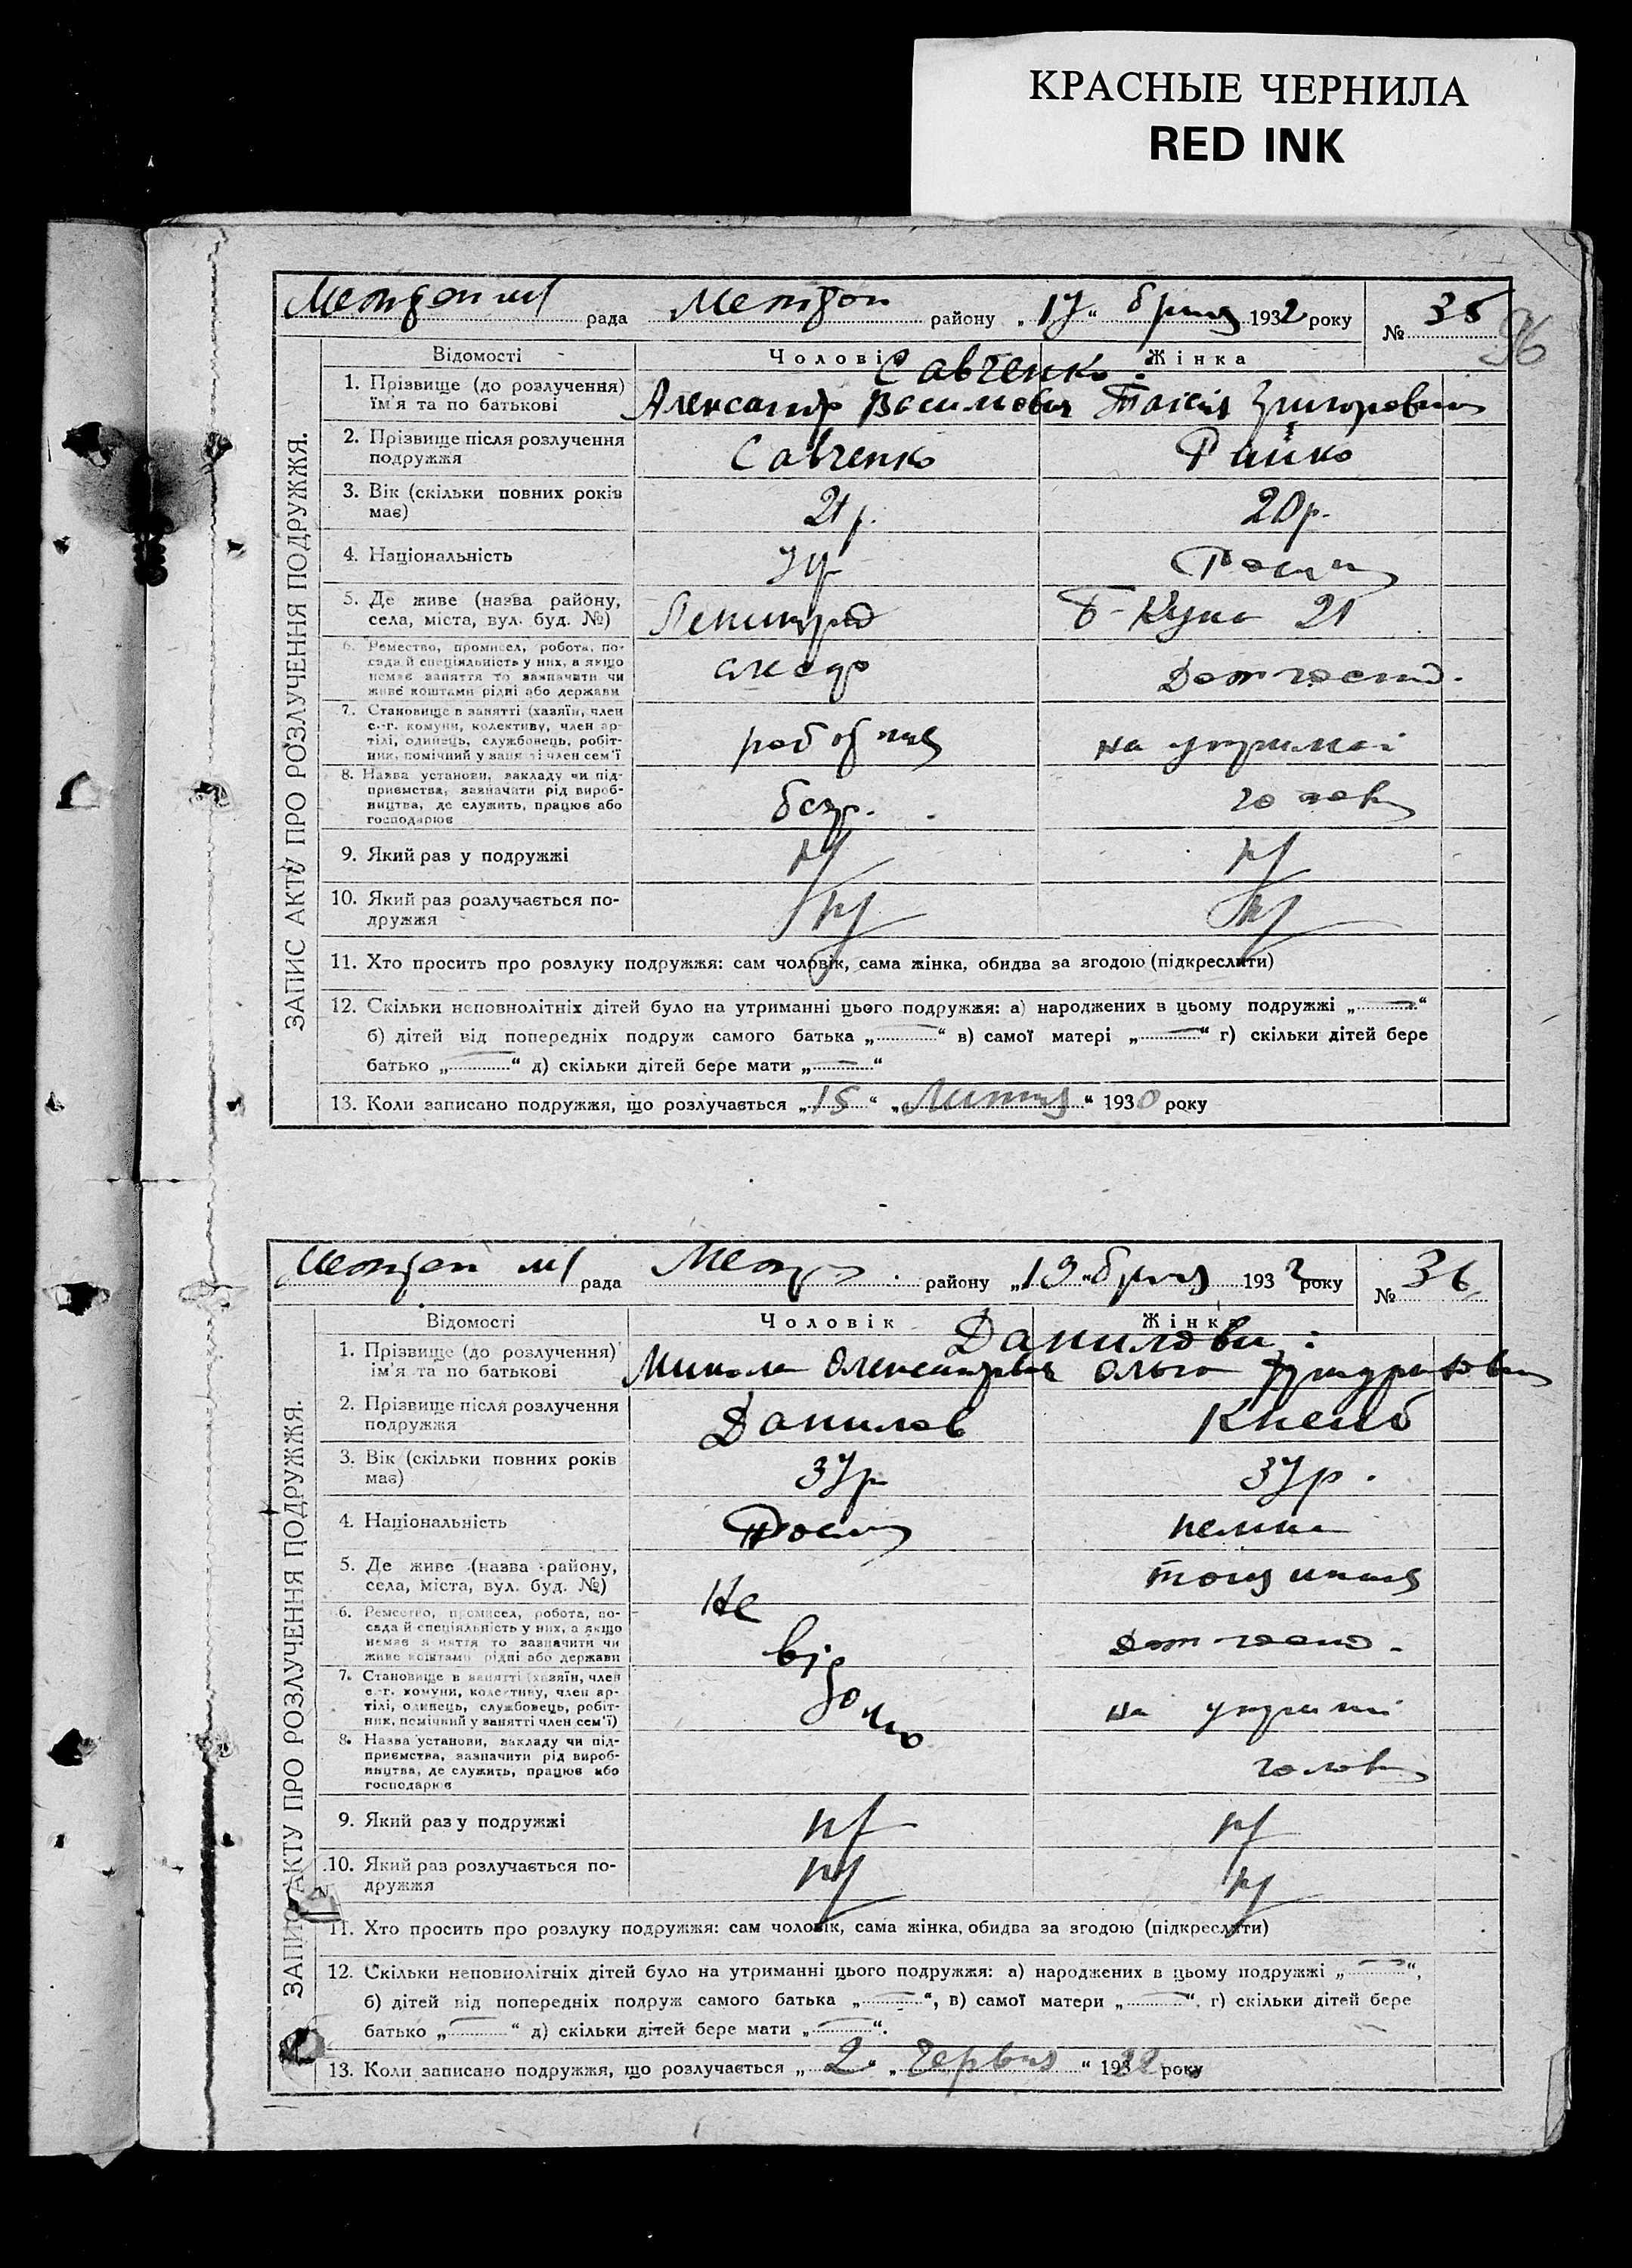 КРАСНЫЕ ЧЕРНИЛА
RED INK
рада району „17“ 1932 року № 35
96
ЗАПИС АКТУ ПРО РОЗЛУЧЕННЯ ПОДРУЖЖЯ.
Відомості Чоловік Жінка
Савченко:
1. Прізвище (до розлучення) ім'я та по батькові Александр Васильович Таісія Григоровна
2. Прізвище після розлучення подружжя Савченко Райко
3. Вік (скільки повних років має) 21 р. 20 р.
4. Національність Укр
5. Де живе (назва району, села, міста, вул. буд. №) Ленинград 21
6. Ремество, промисел, робота, посада й спеціяльність у них, а якщо немає заняття то зазначити чи живе коштами рідні або держави слюсар Дом господ.
7. Становище в занятті (хазяїн, член с.-г. комуни, колективу, член артілі, одинець, службовець, робітник, помічний у занятті член сем'ї на утримані
8. Назва установи, закладу чи підприємства, зазначити рід виробництва, де служить, працює або господарює безр.
9. Який раз у подружжі
10. Який раз розлучається подружжя
11. Хто просить про розлуку подружжя: сам чоловік, сама жінка, обидва за згодою (підкреслити)
12. Скільки неповнолітніх дітей було на утриманні цього подружжя: а) народжених в цьому подружжі „—“
б) дітей від попередніх подруж самого батька „—“ в) самої матері „—“ г) скільки дітей бере
батько „—“ д) скільки дітей бере мати „—“
13. Коли записано подружжя, що розлучається „15“ „Липня“ 1930 року
рада району „19“ 1932 року № 36
ЗАПИС АКТУ ПРО РОЗЛУЧЕННЯ ПОДРУЖЖЯ.
Відомості Чоловік Жінка
Данилови:
1. Прізвище (до розлучення) ім'я та по батькові Микола Олександрович Ольга
2. Прізвище після розлучення подружжя Данилов
3. Вік (скільки повних років має) 37 р 37 р.
4. Національність немка
5. Де живе (назва району, села, міста, вул. буд. №) Не
6. Ремество, промисел, робота, посада й спеціяльність у них, а якщо немає заняття то зазначити чи живе коштами рідні або держави від Дом господ.
7. Становище в занятті (хазяїн, член с.-г. комуни, колективу, член артілі, одинець, службовець, робітник, помічний у занятті член сем'ї) домо на утримані
8. Назва установи, закладу чи підприємства, зазначити рід виробництва, де служить, працює або господарює
9. Який раз у подружжі
10. Який раз розлучається подружжя
11. Хто просить про розлуку подружжя: сам чоловік, сама жінка, обидва за згодою (підкреслити)
12. Скільки неповнолітніх дітей було на утриманні цього подружжя: а) народжених в цьому подружжі „—“,
б) дітей від попередніх подруж самого батька „—“, в) самої матери „—“. г) скільки дітей бере
батько „—“ д) скільки дітей бере мати „—“.
13. Коли записано подружжя, що розлучається „2“ „Червня“ року